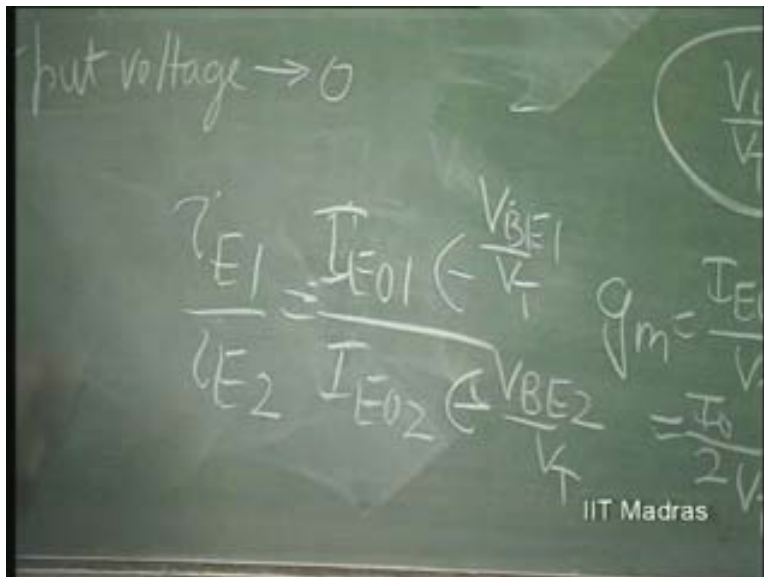 put voltage → 0
i_E1 / i_E2 = I_E01 e^(V_BE1/V_T) / I_E02 e^(V_BE2/V_T)
g_m = I_E0 / V
= I_0 / 2V
V / V_T
IIT Madras